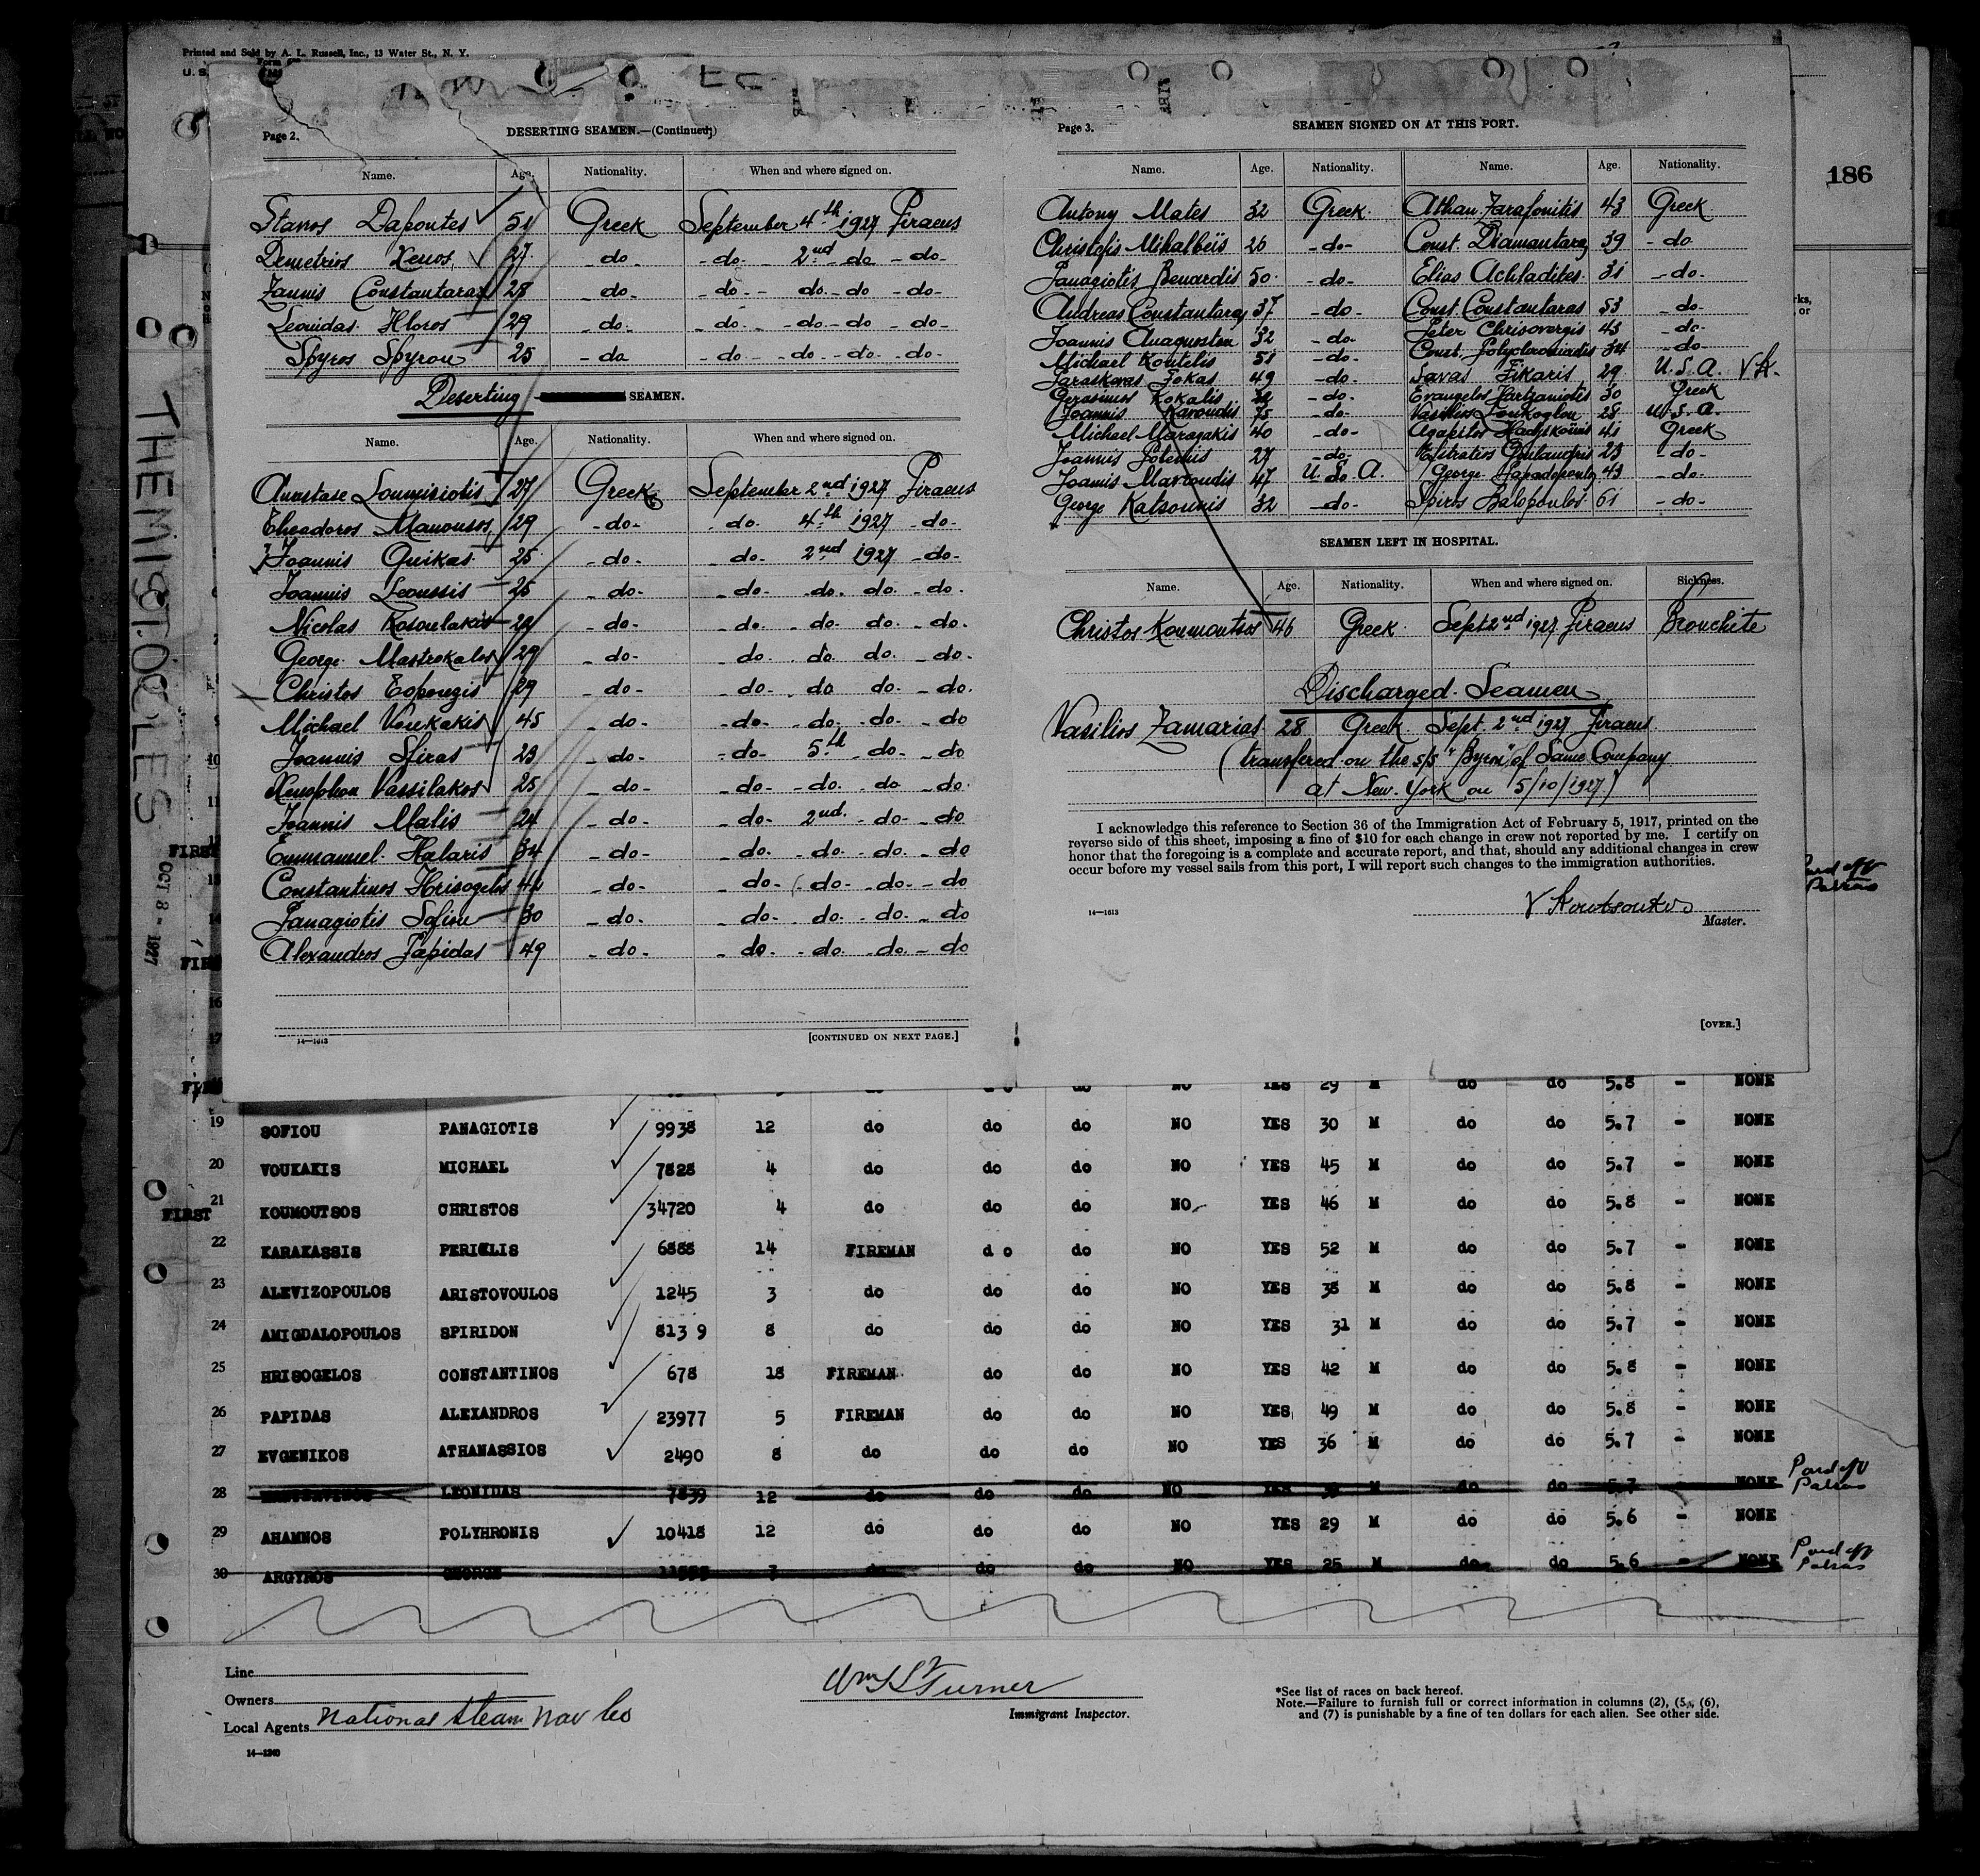 Printed and Sold by A. L. Russell, Inc., 13 Water St., N. Y.
U. S.
Form
186
THEMISTOCLES
OCT 8 - 1927
Page 2. DESERTING SEAMEN.—(Continued)
Name. Age. Nationality. When and where signed on.
Stavros Dapontes 51 Greek September 4th 1927 Piraeus
Demetrios Xenos 27 -do- -do- 2nd -do -do-
Zannis Constantaras 28 -do- -do- -do- -do -do-
Leonidas Hloros 29 -do- -do- -do- -do -do-
Spyros Spyrou 25 -do -do- -do- -do- -do-
Deserting SEAMEN.
Name. Age. Nationality. When and where signed on.
Anastase 27 Greek September 2nd 1927 Piraeus
Theodoros Manousos 29 -do- -do- 4th 1927 -do-
Joannis Guikas 25 -do- -do- 2nd 1927 -do-
Joannis Leoussis 25 -do- -do- -do- do- -do-
Nicolas 29 -do- -do- -do- do- -do-
George Mastrokalos 29 -do- -do- do do- -do-
Christos 29 -do- -do- -do -do- -do.
Michael Voukakis 45 -do- -do- -do- -do- -do
Joannis Sfiras 23 -do- -do- 5th -do- -do
Xenophon Vassilakos 25 -do- -do- -do- -do- -do-
Joannis Matis 24 -do- -do- 2nd -do- -do
Emmanuel Halaris 34 -do- -do- -do- -do- -do
Constantinos Hrisogelos 42 -do- -do- -do- -do- -do
Panagiotis Sofiou 30 -do- -do- -do- -do- -do
Alexandros Papidas 49 -do- -do- -do- -do- -do
14—1613 [CONTINUED ON NEXT PAGE.]
Page 3. SEAMEN SIGNED ON AT THIS PORT.
Name. Age. Nationality. Name. Age. Nationality.
Antony Mates 32 Greek Athan. Zarafonitis 43 Greek
Christofis Mihalbeïs 26 -do- Const. Diamantaras 39 -do-
Panagiotis Benardis 50 -do- Elias Achladites 31 -do-
Andreas Constantaras 37 -do- Const. Constantaras 53 -do-
Joannis Anagnostou 32 -do- Peter Chrisovergis 43 -do-
Michael Koutelis 51 -do- Const. 34 -do-
Paraskevas Fokas 49 -do- Savas Fikaris 29 U. S. A.
Gerasimos Kokalis -do- Evangelos 30 Greek
Joannis 75 -do- Vasilios 28 U. S. A.
Michael Maragakis 40 -do- Agapitos 41 Greek
Joannis Polemis 27 -do- Efstratios 23 -do-
Joannis Mavroudis 47 U. S. A. George Papadopoulos 43 -do-
George Katsounis 32 -do- Spiros Balopoulos 61 -do-
SEAMEN LEFT IN HOSPITAL.
Name. Age. Nationality. When and where signed on. Sickness.
Christos Koumoutsos 46 Greek Sept 2nd 1927 Piraeus Bronchite
Discharged Seamen
Vasilios Zamarias 28 Greek Sept. 2nd 1927 Piraeus
(transfered on the s/s "Byron" of Same Company
at New-York on 5/10/1927)
I acknowledge this reference to Section 36 of the Immigration Act of February 5, 1917, printed on the
reverse side of this sheet, imposing a fine of $10 for each change in crew not reported by me. I certify on
honor that the foregoing is a complete and accurate report, and that, should any additional changes in crew
occur before my vessel sails from this port, I will report such changes to the immigration authorities.
14—1613
Master.
[OVER.]
do do NO YES 29 M do do 5.8 - NONE
19 SOFIOU PANAGIOTIS 9938 12 do do do NO YES 30 M do do 5.7 - NONE
20 VOUKAKIS MICHAEL 7828 4 do do do NO YES 45 M do do 5.7 - NONE
FIRST 21 KOUMOUTSOS CHRISTOS 34720 4 do do do NO YES 46 M do do 5.8 - NONE
22 KARAKASSIS PERICLIS 6888 14 FIREMAN do do NO YES 52 M do do 5.7 - NONE
23 ALEVIZOPOULOS ARISTOVOULOS 1245 3 do do do NO YES 38 M do do 5.8 - NONE
24 AMIGDALOPOULOS SPIRIDON 8139 8 do do do NO YES 31 M do do 5.7 - NONE
25 HRISOGELOS CONSTANTINOS 678 18 FIREMAN do do NO YES 42 M do do 5.8 - NONE
26 PAPIDAS ALEXANDROS 23977 5 FIREMAN do do NO YES 49 M do do 5.8 - NONE
27 EVGENIKOS ATHANASSIOS 2490 8 do do do NO YES 36 M do do 5.7 - NONE
28 LEONIDAS 7839 12 do do do NO YES M do do 5.7 - NONE Paid off Patras
29 AHAMNOS POLYHRONIS 10418 12 do do do NO YES 29 M do do 5.6 - NONE
30 ARGYROS GEORGE 7 do do do NO YES 25 M do do 5.6 - NONE Paid off Patras
Line
Owners
Local Agents National Steam Nav Co
14—1240
Wm Turner
Immigrant Inspector.
*See list of races on back hereof.
Note.—Failure to furnish full or correct information in columns (2), (5), (6),
and (7) is punishable by a fine of ten dollars for each alien. See other side.